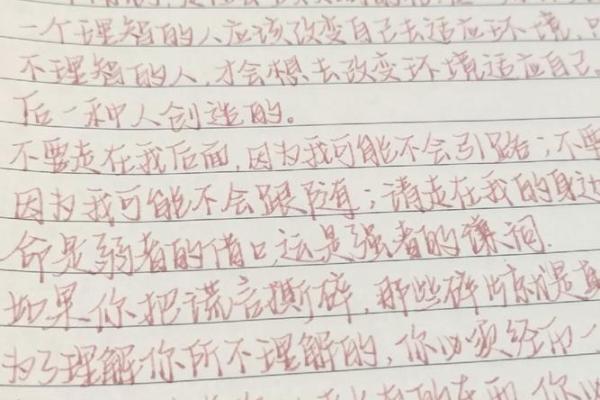 一个理智的人应该改变自己去适应环境,只
不理智的人,才会想去改变环境适应自己。
后一种人创造的。
不要走在我后面,因为我可能不会引路;不要
因为我可能不会跟随;请走在我的身边
命是弱者的借口,运是强者的谦词.
如果你把谎言撕碎,那些碎片就是真
为了理解你所不理解的,你必须经历一